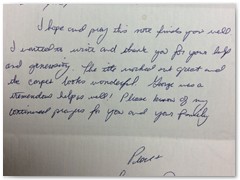 I hope and pray this note finds you well
I wanted to write and thank you for your help
and generosity. The tile worked out great and
the carpet looks wonderful. George was a
tremendous help as well! Please know of my
continued prayers for you and your family
Peace